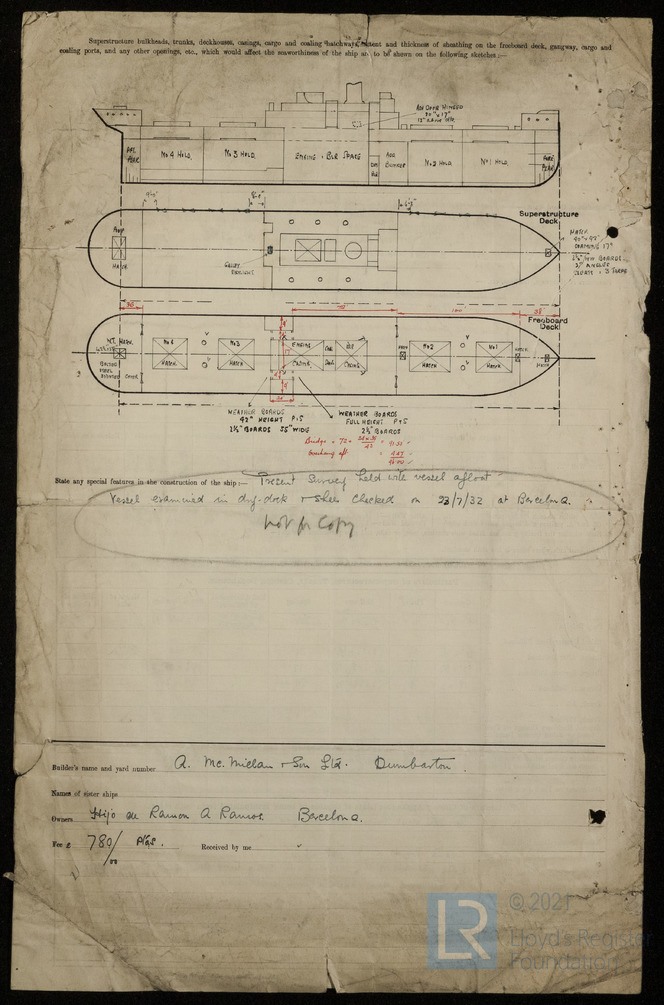 Superstructure bulkheads, trunks, deckhouses, casings, cargo and coaling hatchways, extent and thickness of sheathing on the freeboard deck, gangway, cargo and
coaling ports, and any other openings, etc., which would affect the seaworthiness of the ship are to be shown on the following sketches:—
ASH DOOR HINGED
AFT PEAK
No 4 HOLD.
No 3 HOLD.
ENGINE & BLR SPACE
No 2 HOLD
No 1 HOLD.
FORE PEAK
Superstructure
Deck.
POOP
HATCH
GALLEY
HATCH
COAMING 17"
36
72
100
38
Freeboard
Deck
No 4
HATCH
No 3
HATCH
ENGINE
CASING
No 2
HATCH
No 1
HATCH
HATCH
WEATHER BOARDS
42" HEIGHT P & S
2½" BOARDS 55" WIDE
WEATHER BOARDS
FULL HEIGHT P & S
2½" BOARDS
Bridge = 72 +
State any special features in the construction of the ship:— Present Survey held with vessel afloat
Vessel examined in dry-dock & Shell checked on 23/7/32 at Barcelona.
Not for Copy
Builder's name and yard number A. Mc. Millan & Son Ltd. Dumbarton.
Names of sister ships
Owners Hijo de Ramon A Ramos Barcelona.
Fee £ 780/00 Ptas. Received by me
© 2021
LR
Lloyd's Register
Foundation